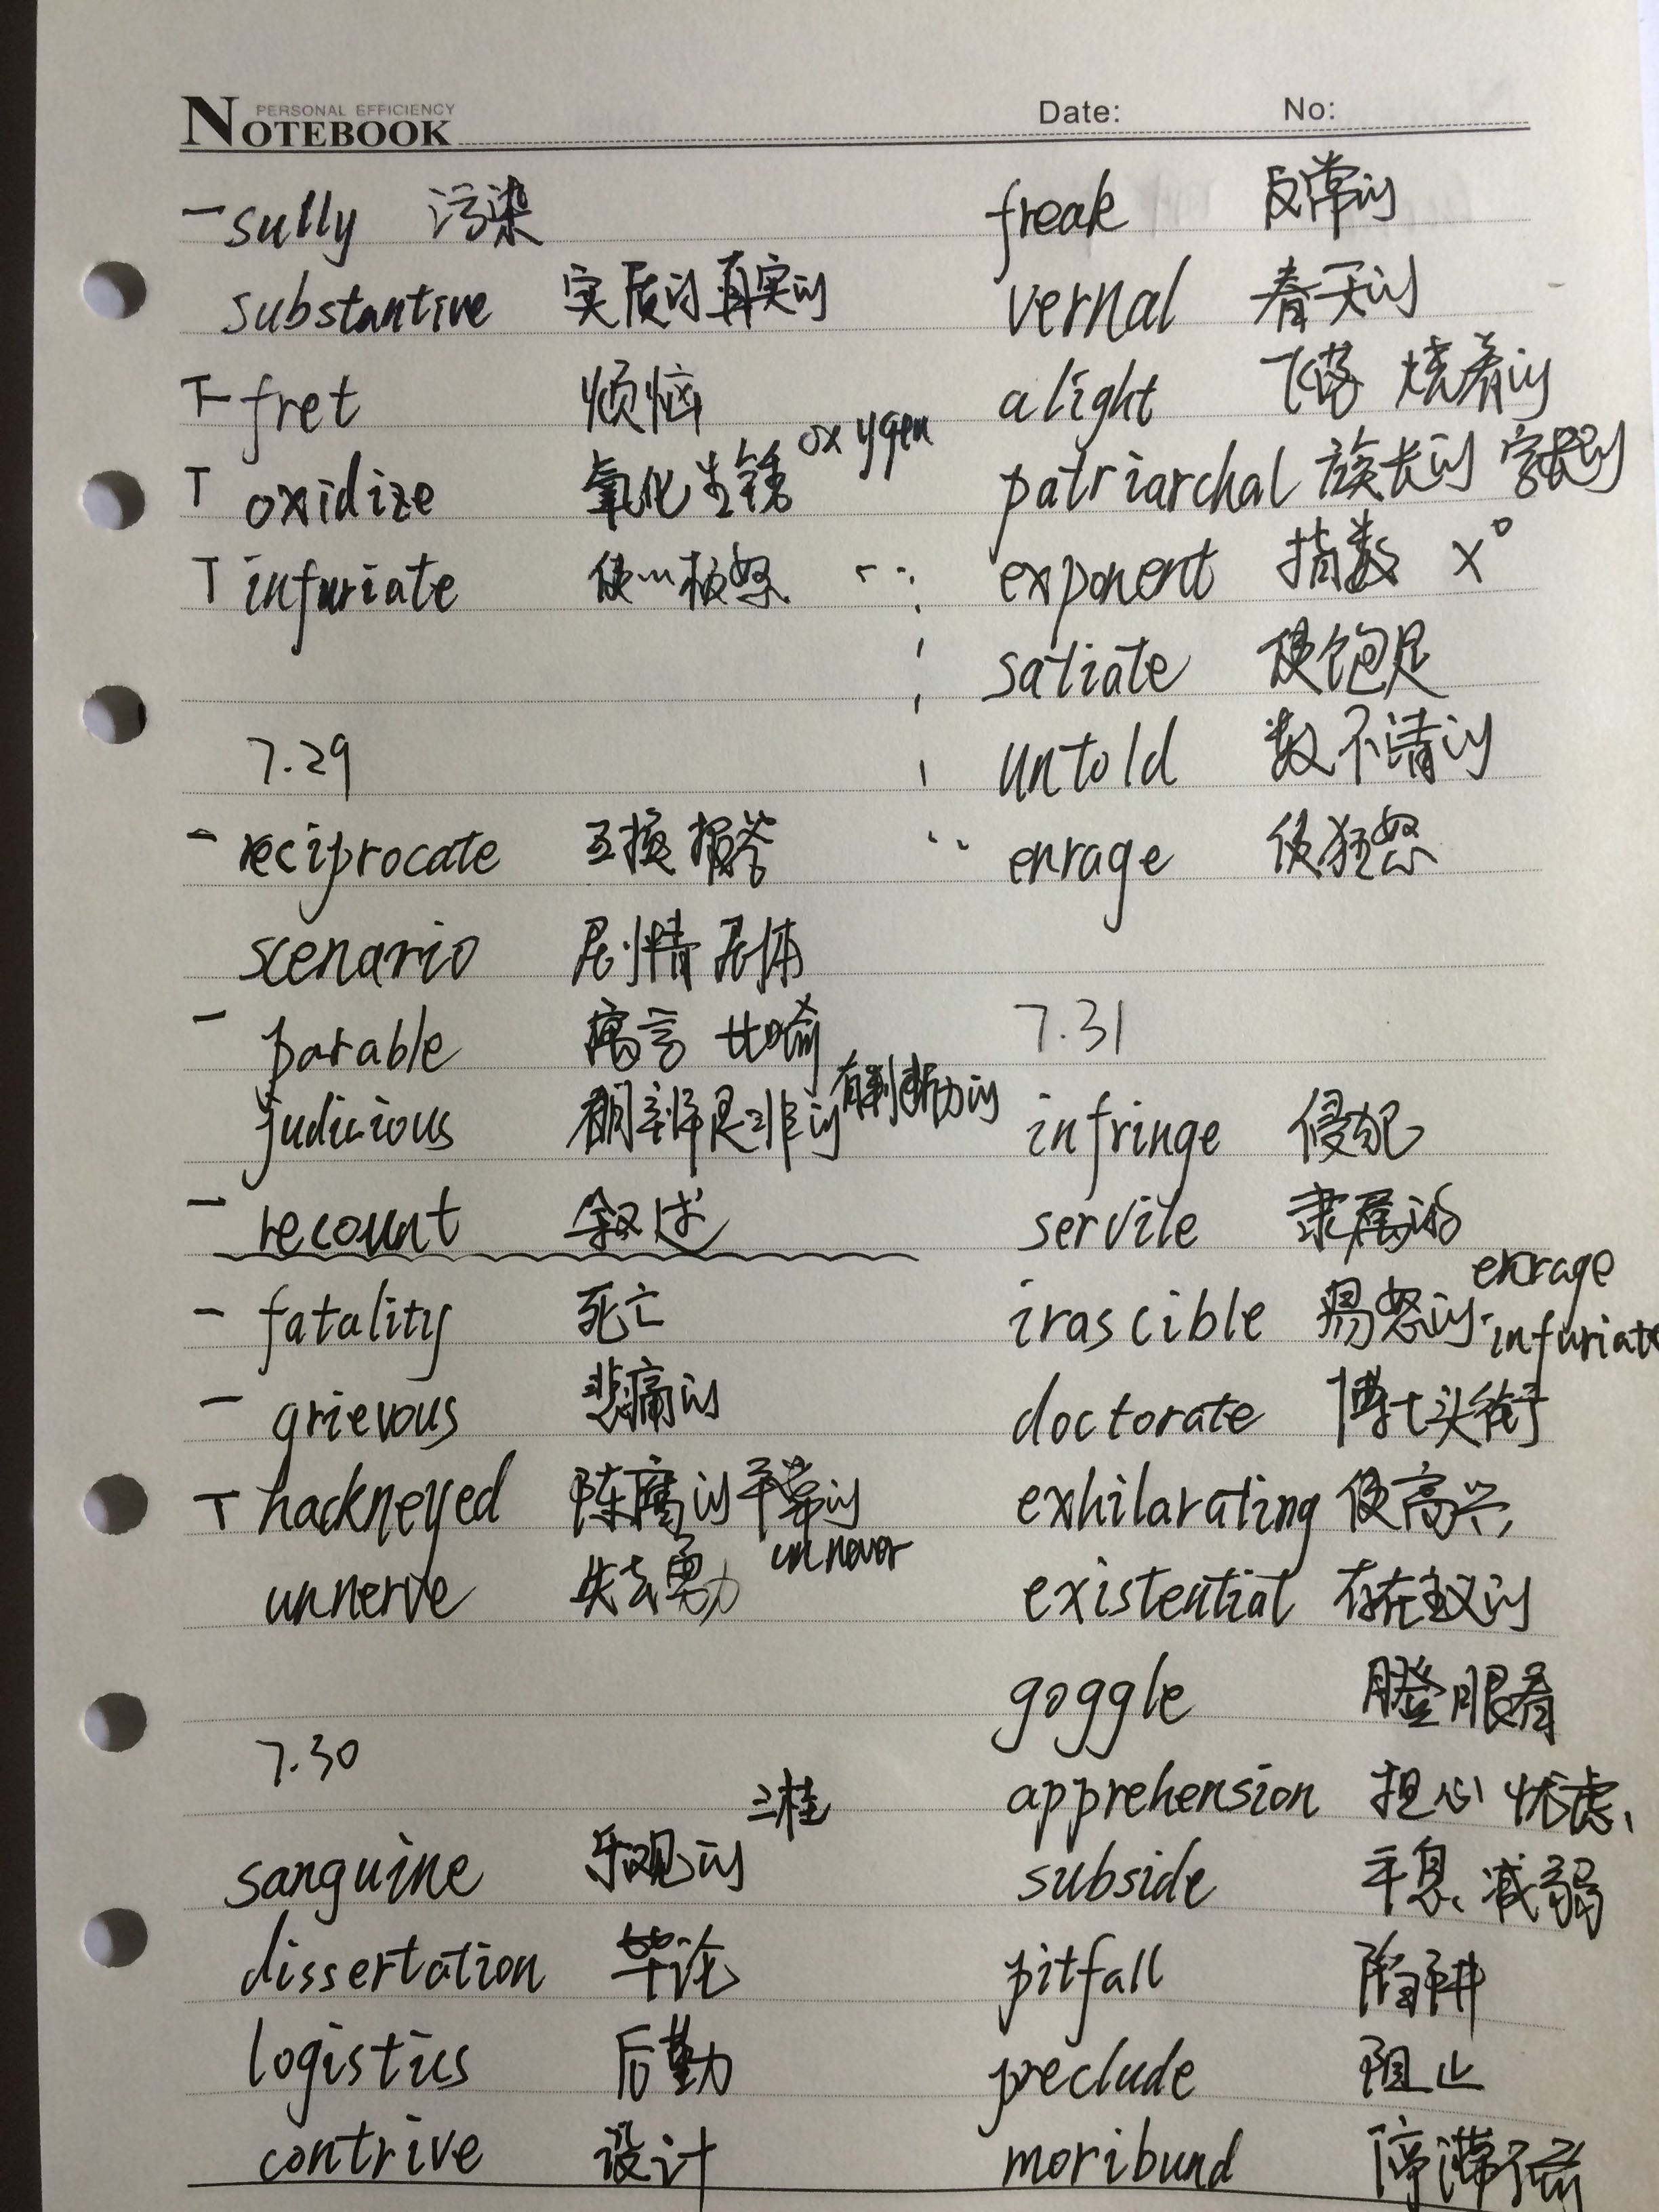 PERSONAL EFFICIENCY
NOTEBOOK
Date: No:
sully 污染
substantive 实质的 真实的
fret 烦恼
oxidize 氧化 生锈 oxygen
infuriate 使…极怒
7.29
reciprocate 互换 报答
scenario 剧情
parable 寓言 比喻
judicious 明辨是非的 有判断力的
recount 叙述
fatality 死亡
grievous 悲痛的
hackneyed 陈腐的 平常的
unnerve 失去勇力 un never
7.30
sanguine 乐观的 三桂
dissertation 毕论
logistics 后勤
contrive 设计
freak 反常的
vernal 春天的
alight 飞落 烧着的
patriarchal 族长的
exponent 指数 x°
satiate 使饱足
untold 数不清的
enrage 使狂怒
7.31
infringe 侵犯
servile 隶属的
irascible 易怒的 enrage
infuriate
doctorate 博士头衔
exhilarating 使高兴
existential 存在主义的
goggle 瞪眼看
apprehension 担心 忧虑、
subside 平息、减弱
pitfall 陷阱
preclude 阻止
moribund 停滞不前